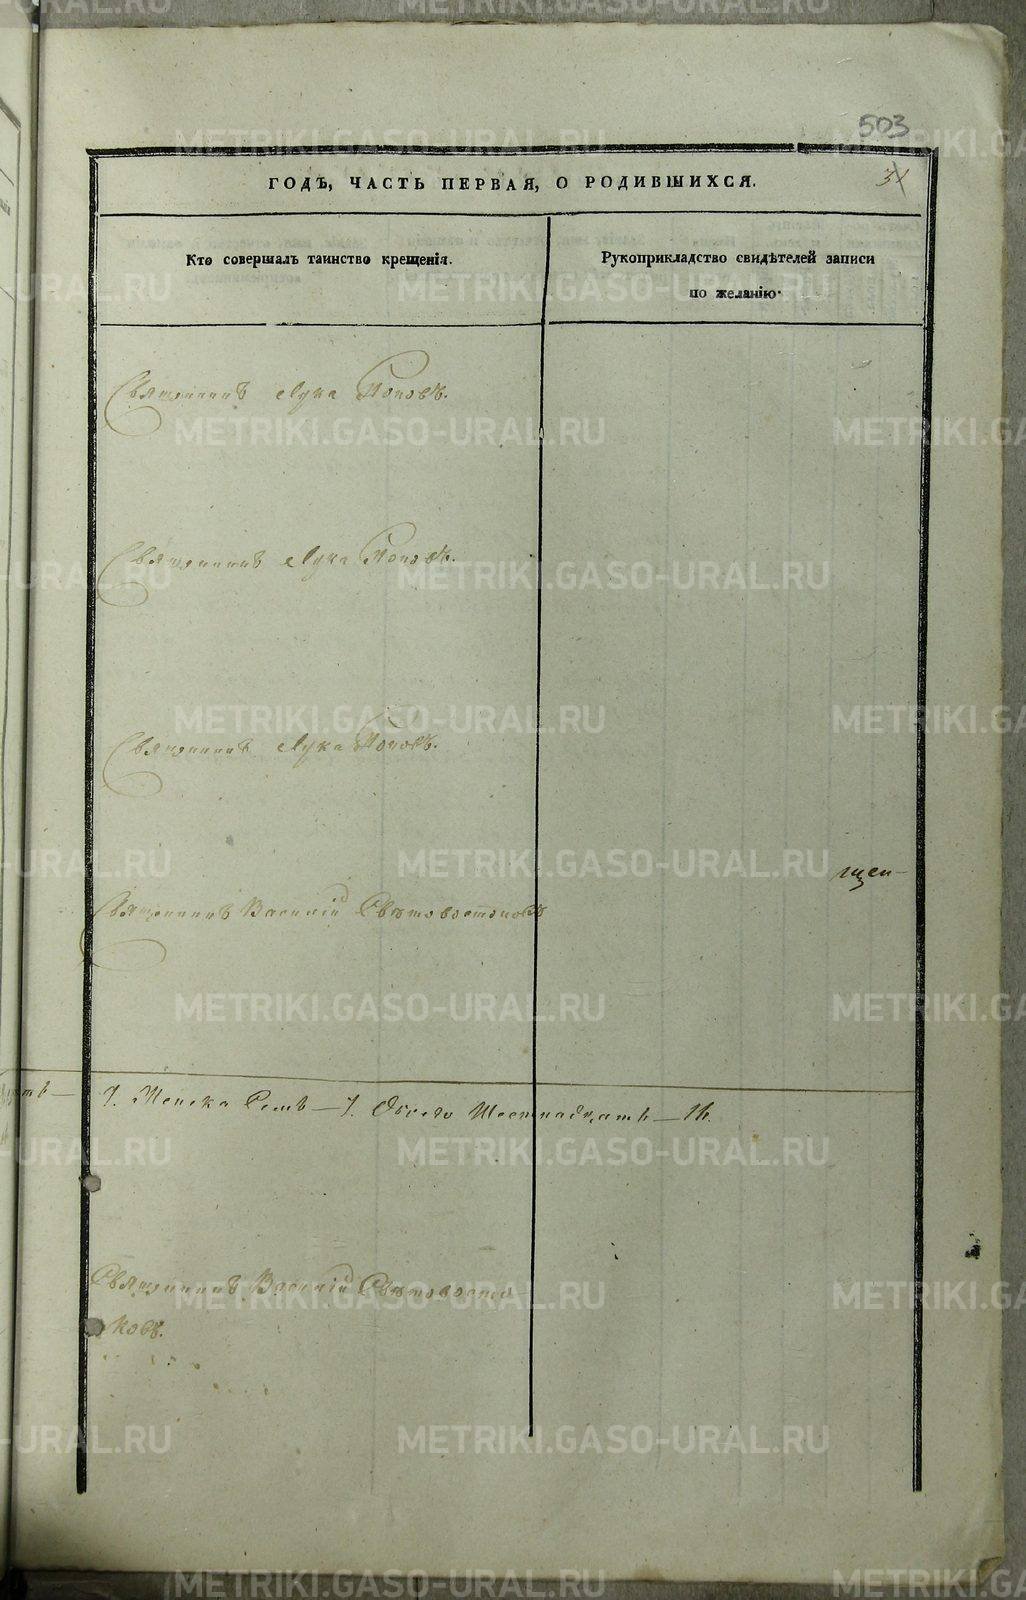 503
31
ГОДЪ, ЧАСТЬ ПЕРВАЯ, О РОДИВШИХСЯ.
Кто совершалъ таинство крещенія.
Рукоприкладство свидѣтелей записи
по желанію.
Священникъ Лука Поповъ.
Священникъ Лука Поповъ.
Священникъ Лука Поповъ.
щен-
Священникъ Василій Свѣтовостоковъ
7. Женска Семь — 7. Обоего Шестнадцать — 16.
Священникъ Василій Свѣтовосто-
ковъ.
METRIKI.GASO-URAL.RU